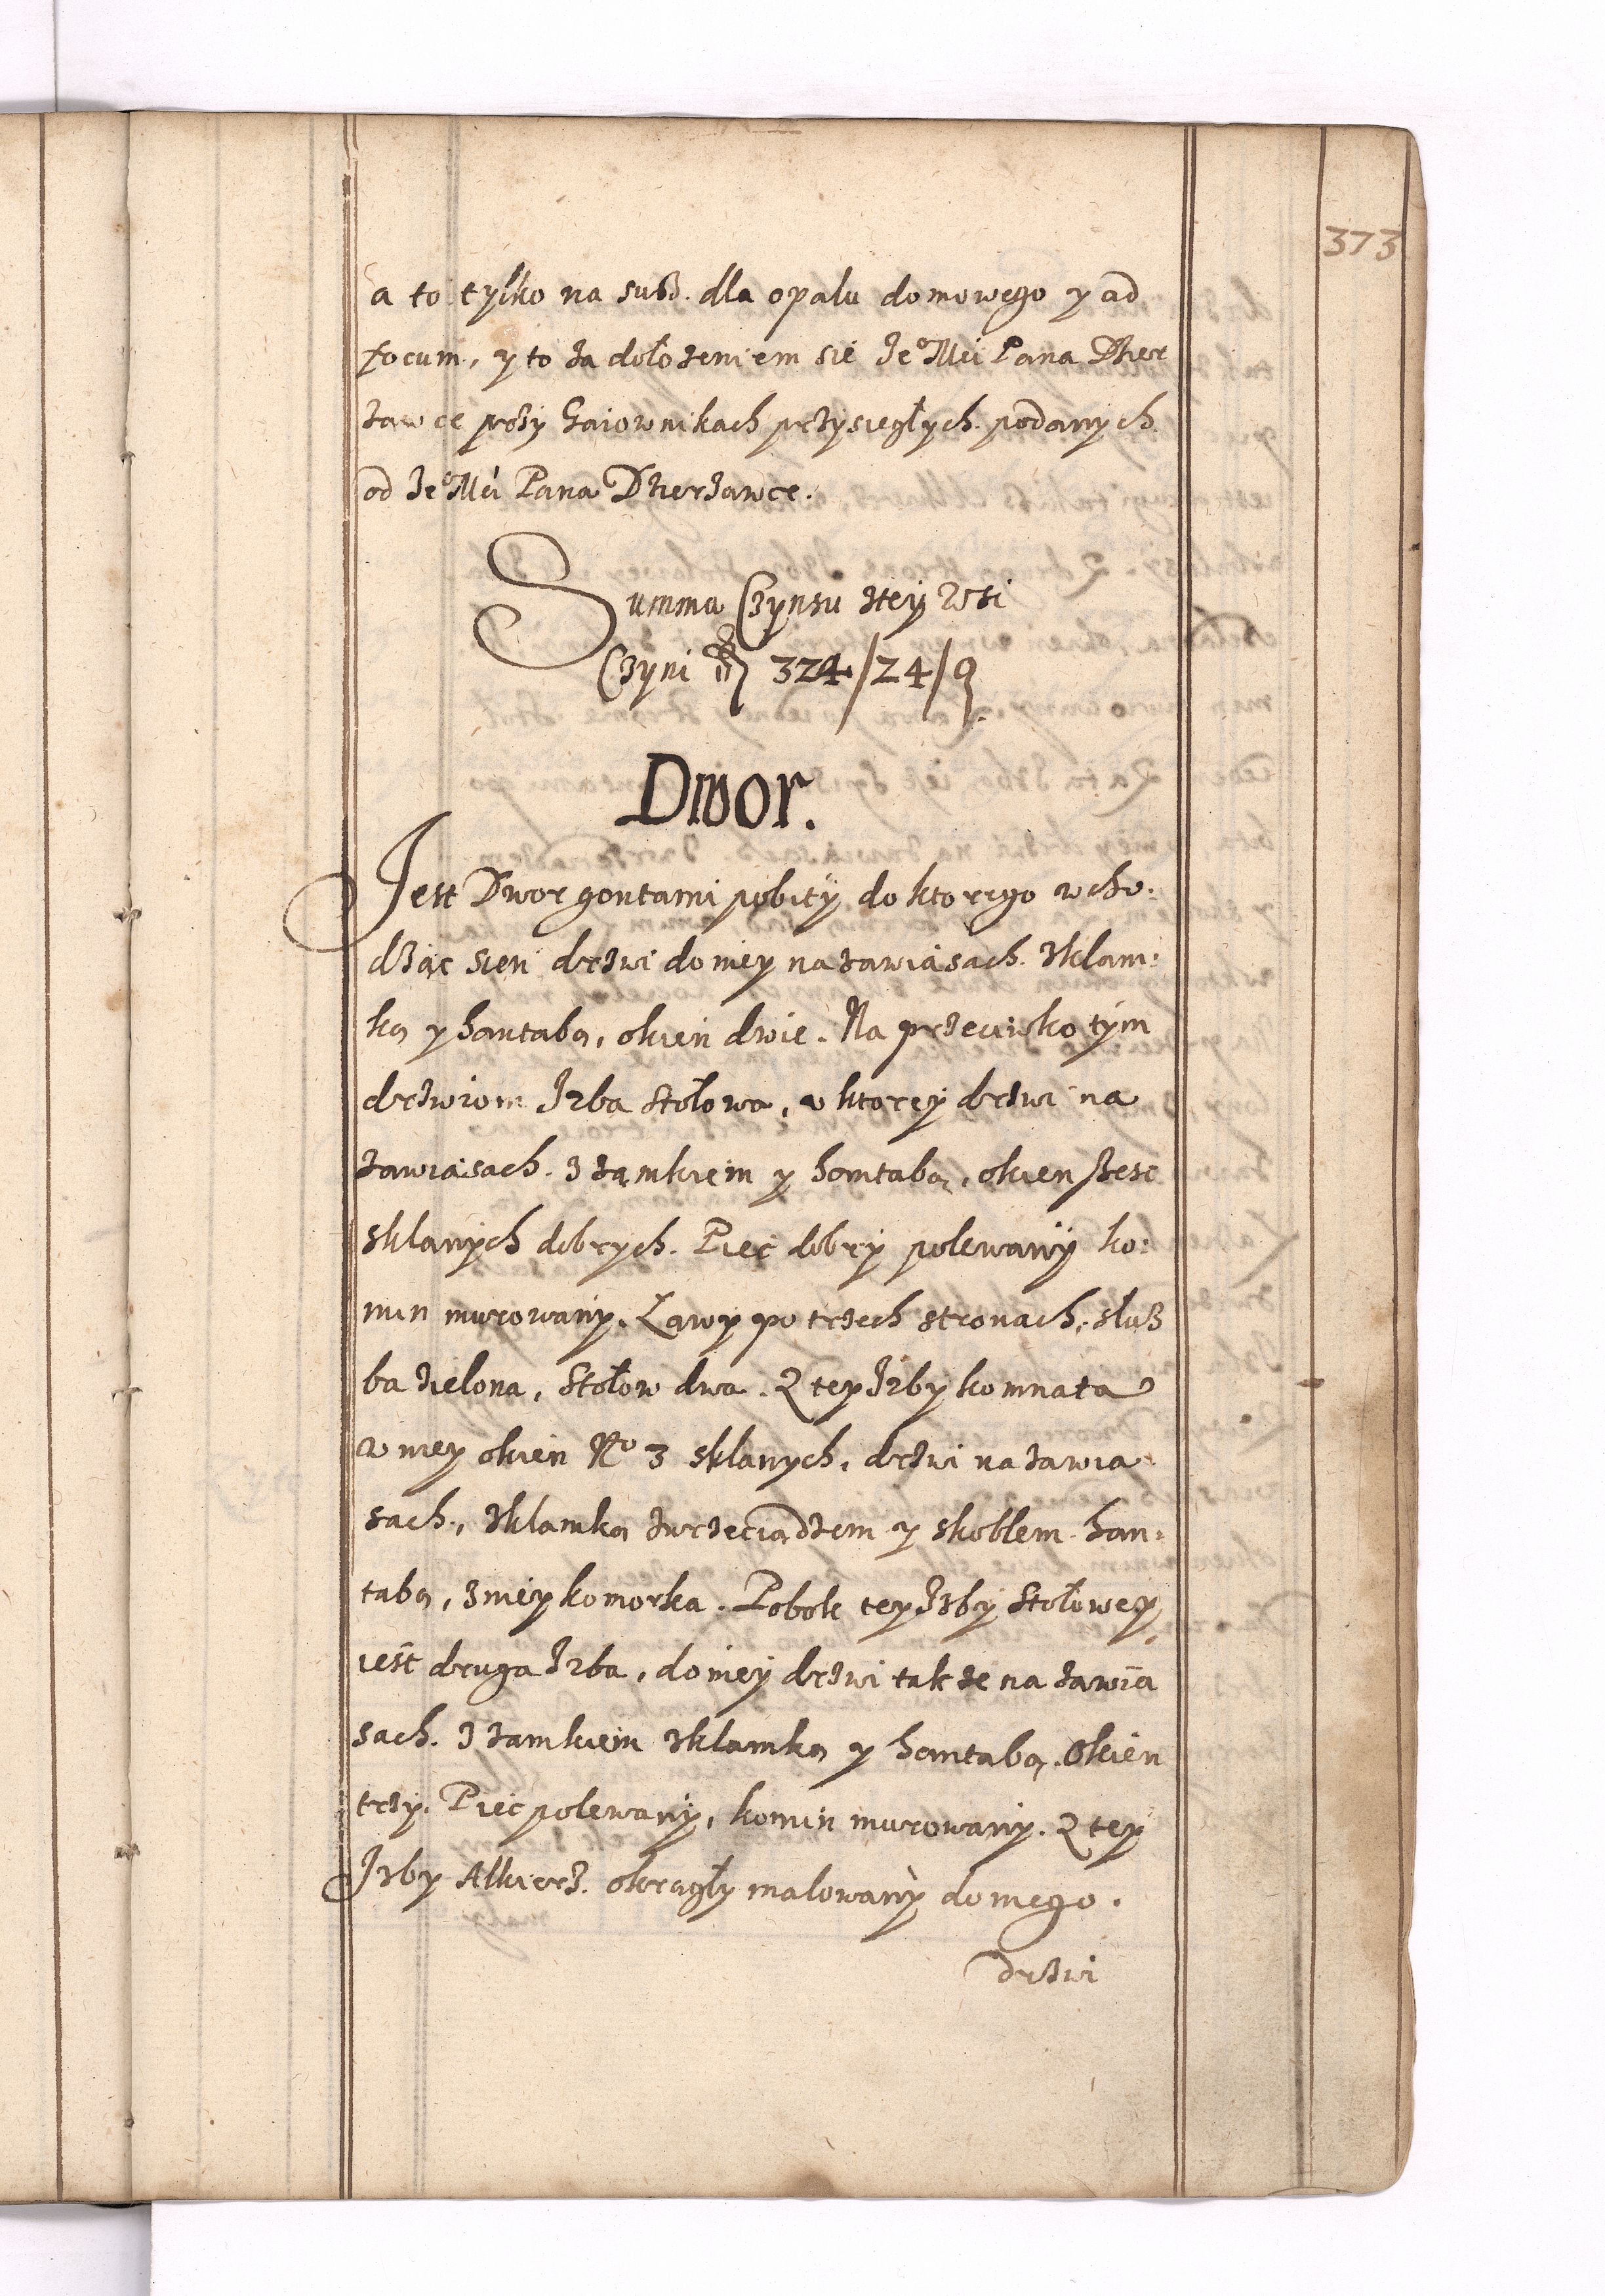 373
a to tylko na susz. dla opału domowego y ad
focum, y to za dołożeniem się Jeº Mci Pana Dzier
zawce przy Gaiownikach przysięgłych podanych
od Jeº Mci Pana Dzierzawce.
Summa Czynsu ztey Wsi
Czyni fl 324/24/9.
Dwor.
Jest Dwor gontami pobity do ktorego wcho:
dząc sień drzwi do niey na zawiasach zklam:
ką y hantabą, okien dwie. Na przeciwko tym
drzwiom Jzba stołowa, v ktorey drzwi na
zawiasach z zamkiem y hantabą, okien szesc
sklanych dobrych. Piec dobry polewany ko:
min murowany. Ławy po trzech stronach, słusz
ba zielona, stołow dwa. Z tey Jzby komnata
w niey okien Nº 3 sklanych, drzwi na zawia
sach, zklamką zwrzeciądzem y skoblem han:
tabą, z niey komorka. Pobok tey Jzby stołowey
iest druga Jzba, do niey drzwi takze na zawia
sach z zamkiem zklamką y hantabą. Okien
trzy. Piec polewany, komin murowany. Z tey
Jzby Alkierz okrągły malowany do niego.
drzwi